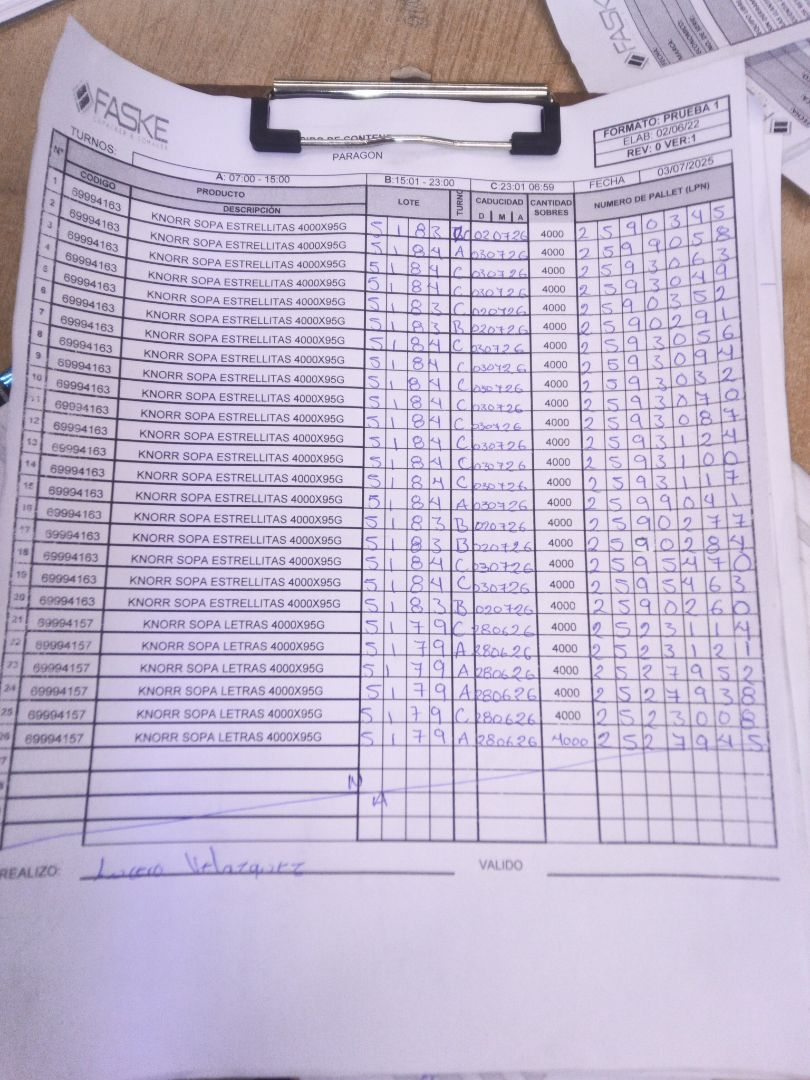 FASKE
PARAGON
FORMATO: PRUEBA 1
ELAB: 02/06/22
REV: 0 VER:1
TURNOS: A: 07:00 - 15:00 B:15:01 - 23:00 C:23:01 06:59 FECHA 03/07/2025
N° CODIGO PRODUCTO DESCRIPCIÓN LOTE TURNO CADUCIDAD D M A CANTIDAD SOBRES NUMERO DE PALLET (LPN)
1 69994163 KNORR SOPA ESTRELLITAS 4000X95G 5183 020726 4000 2590345
2 69994163 KNORR SOPA ESTRELLITAS 4000X95G 5184 A 030726 4000 2599058
3 69994163 KNORR SOPA ESTRELLITAS 4000X95G 5184 C 030726 4000 2593063
4 69994163 KNORR SOPA ESTRELLITAS 4000X95G 5184 C 030726 4000 2593049
5 69994163 KNORR SOPA ESTRELLITAS 4000X95G 5183 C 020726 4000 2590352
6 69994163 KNORR SOPA ESTRELLITAS 4000X95G 5183 B 020726 4000 2590291
7 69994163 KNORR SOPA ESTRELLITAS 4000X95G 5184 C 030726 4000 2593056
8 69994163 KNORR SOPA ESTRELLITAS 4000X95G 5184 C 030726 4000 2593094
9 69994163 KNORR SOPA ESTRELLITAS 4000X95G 5184 C 030726 4000 2593032
10 69994163 KNORR SOPA ESTRELLITAS 4000X95G 5184 C 030726 4000 2593070
11 69994163 KNORR SOPA ESTRELLITAS 4000X95G 5184 C 030726 4000 2593087
12 69994163 KNORR SOPA ESTRELLITAS 4000X95G 5184 C 030726 4000 2593124
13 69994163 KNORR SOPA ESTRELLITAS 4000X95G 5184 C 030726 4000 2593100
14 69994163 KNORR SOPA ESTRELLITAS 4000X95G 5184 C 030726 4000 2593117
15 69994163 KNORR SOPA ESTRELLITAS 4000X95G 5184 A 030726 4000 2599041
16 69994163 KNORR SOPA ESTRELLITAS 4000X95G 5183 B 020726 4000 2590277
17 69994163 KNORR SOPA ESTRELLITAS 4000X95G 5183 B 020726 4000 2590284
18 69994163 KNORR SOPA ESTRELLITAS 4000X95G 5184 C 030726 4000 2595470
19 69994163 KNORR SOPA ESTRELLITAS 4000X95G 5184 C 030726 4000 2595463
20 69994163 KNORR SOPA ESTRELLITAS 4000X95G 5183 B 020726 4000 2590260
21 69994157 KNORR SOPA LETRAS 4000X95G 5179 C 280626 4000 2523114
22 69994157 KNORR SOPA LETRAS 4000X95G 5179 A 280626 4000 2523121
23 69994157 KNORR SOPA LETRAS 4000X95G 5179 A 280626 4000 2527952
24 69994157 KNORR SOPA LETRAS 4000X95G 5179 A 280626 4000 2527938
25 69994157 KNORR SOPA LETRAS 4000X95G 5179 C 280626 4000 2523008
26 69994157 KNORR SOPA LETRAS 4000X95G 5179 A 280626 4000 2527945
N
A
REALIZO: Lucero Velazquez VALIDO